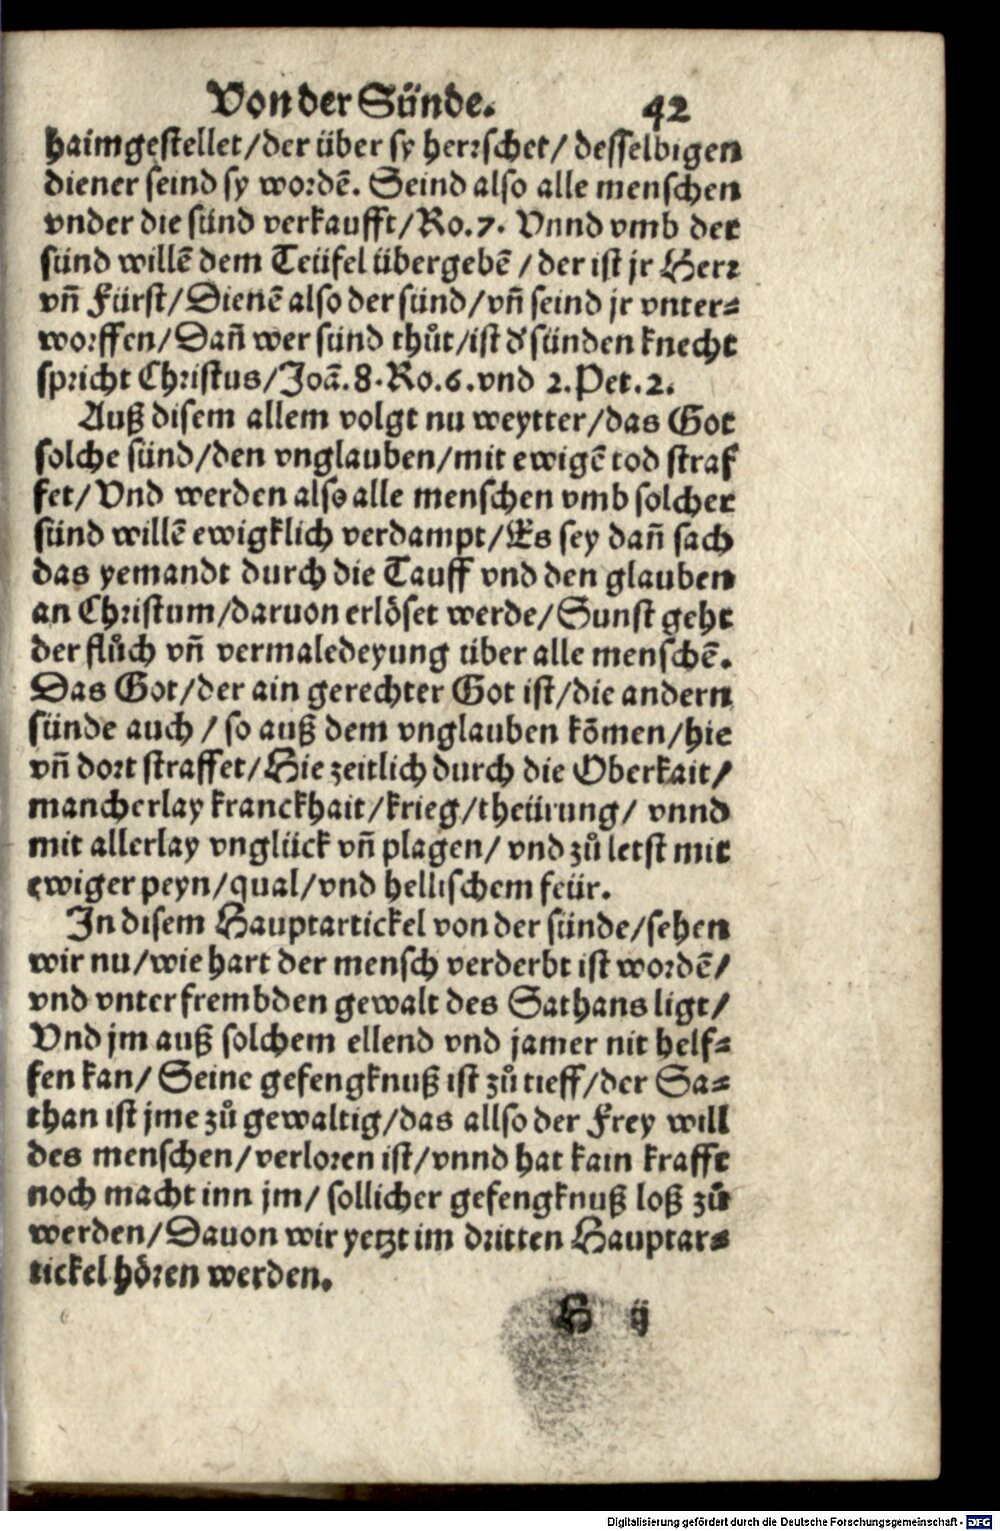 Von der Sünde. 42
haimgestellet/der über sy herrschet/ desselbigen
diener seind sy wordē. Seind also alle menschen
vnder die sünd verkaufft/Ro.7. Vnnd vmb der
sünd willē dem Teüfel übergebē /der ist jr Herr
vñ Fürst/Dienē also der sünd/vñ seind jr vnter-
worffen/Dañ wer sünd thůt/ist d' sünden knecht
spricht Christus/Joā.8.Ro.6.vnd 2.Pet.2.
Auß disem allem volgt nu weytter/das Got
solche sünd/den vnglauben/mit ewigē tod straf
fet/Vnd werden also alle menschen vmb solcher
sünd willē ewigklich verdampt/Es sey dañ sach
das yemandt durch die Tauff vnd den glauben
an Christum/daruon erlöset werde/Sunst geht
der flůch vñ vermaledeyung über alle menschē.
Das Got/der ain gerechter Got ist/die andern
sünde auch / so auß dem vnglauben kōmen/hie
vñ dort straffet/Hie zeitlich durch die Oberkait/
mancherlay kranckhait/krieg/theürung/ vnnd
mit allerlay vnglück vñ plagen/ vnd zů letst mit
ewiger peyn/qual/vnd hellischem feür.
In disem Hauptartickel von der sünde/sehen
wir nu/wie hart der mensch verderbt ist wordē/
vnd vnter frembden gewalt des Sathans ligt/
Vnd jm auß solchem ellend vnd jamer nit helf-
fen kan/ Seine gefengknuß ist zů tieff/der Sa-
than ist jme zů gewaltig/das allso der Frey will
des menschen/verloren ist/vnnd hat kain krafft
noch macht inn jm/ sollicher gefengknuß loß zů
werden/Dauon wir yetzt im dritten Hauptar-
tickel hören werden.
H ij
Digitalisierung gefördert durch die Deutsche Forschungsgemeinschaft - DFG